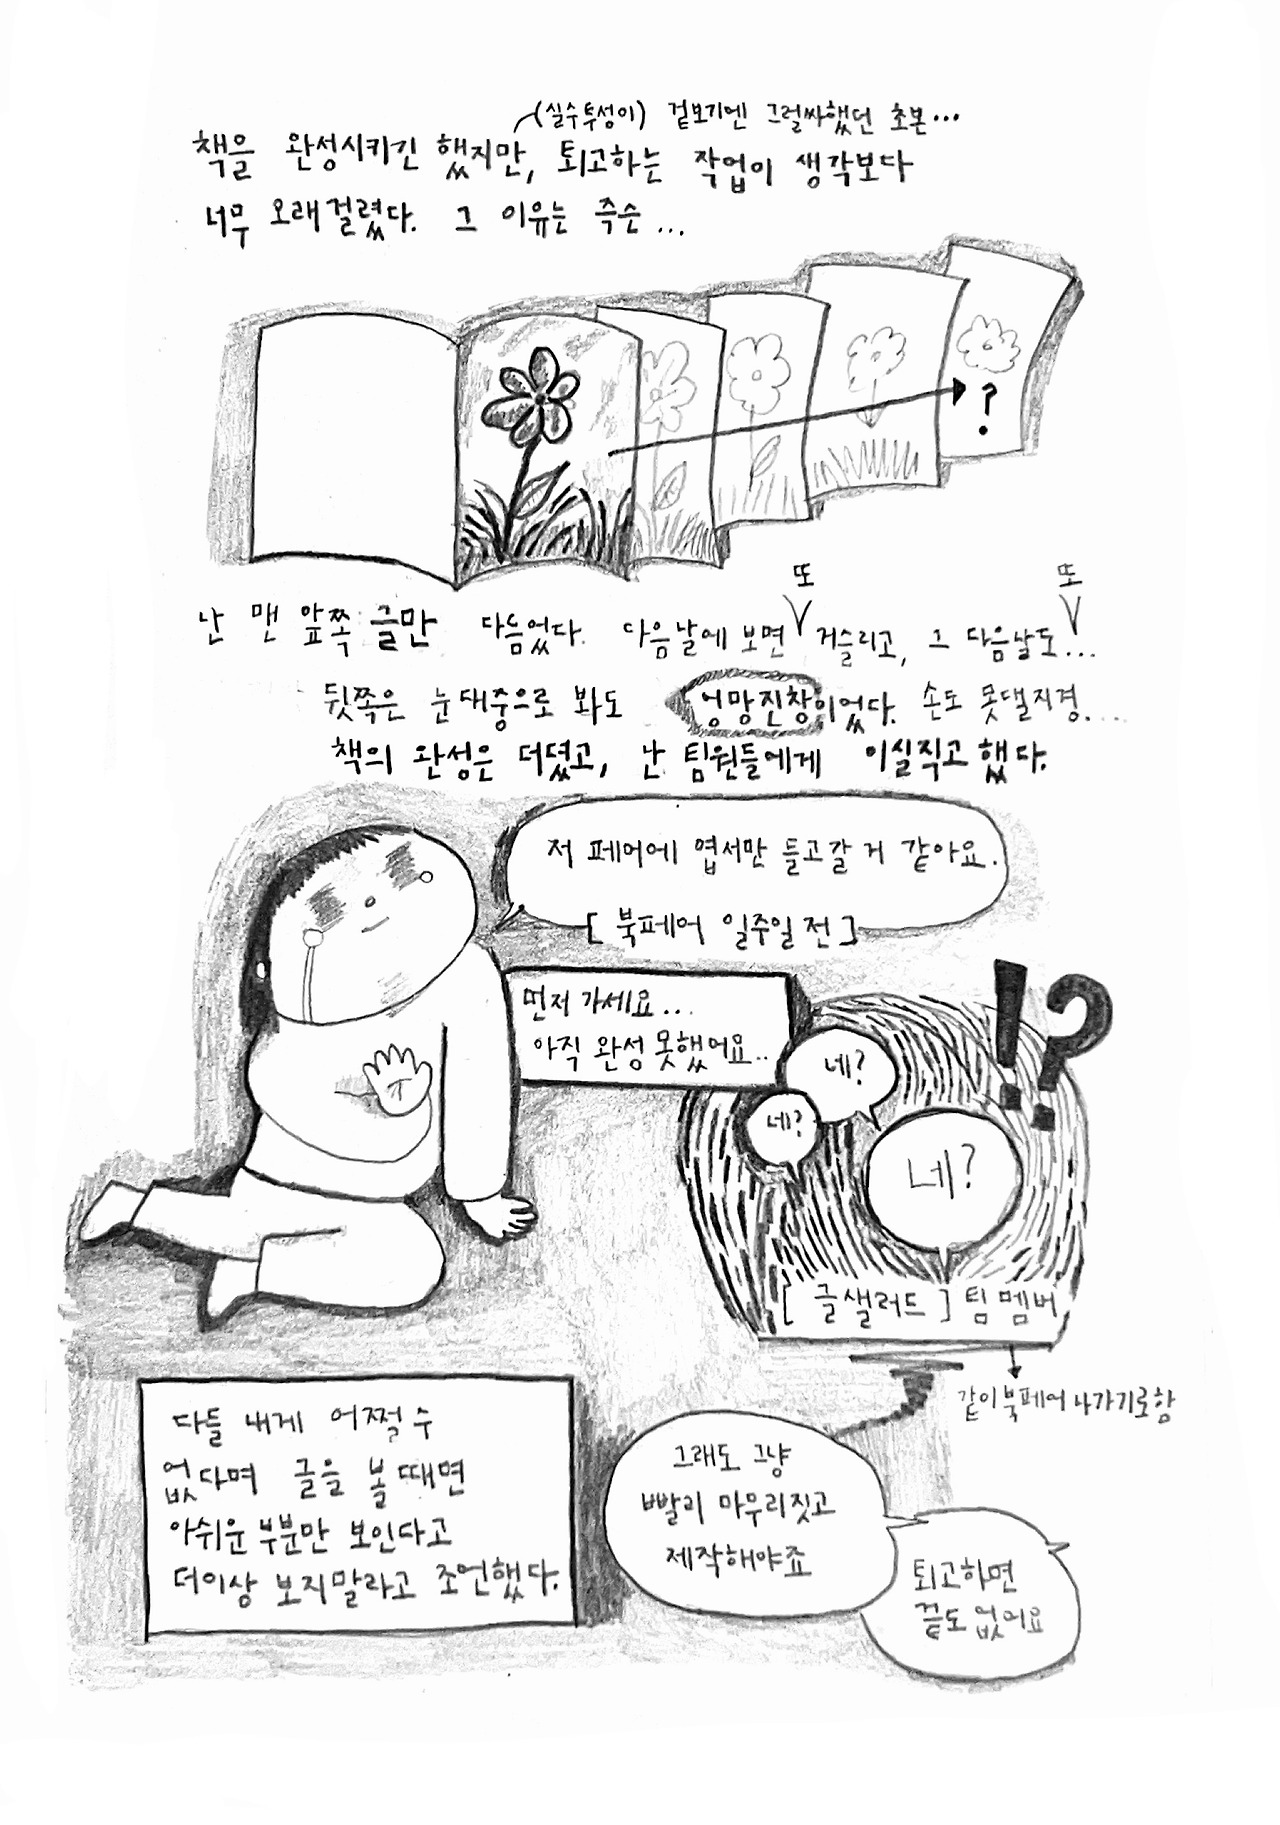 (실수투성이) 겉보기엔 그럴싸했던 초본...
책을 완성시키긴 했지만, 퇴고하는 작업이 생각보다
너무 오래걸렸다. 그 이유는 즉슨...
?
또 또
난 맨 앞쪽 글만 다듬었다. 다음날에 보면 거슬리고, 그 다음날도...
뒷쪽은 눈대중으로 봐도 엉망진창이었다. 손도 못댈지경....
책의 완성은 더뎠고, 난 팀원들에게 이실직고했다.
저 페어에 엽서만 들고갈 거 같아요.
[북페어 일주일 전]
먼저 가세요...
아직 완성 못했어요..
!?
네?
네?
네?
[글샐러드] 팀 멤버
같이 북페어 나가기로 함
다들 내게 어쩔 수
없다며 글을 볼 때면
아쉬운 부분만 보인다고
더이상 보지말라고 조언했다.
그래도 그냥
빨리 마무리짓고
제작해야죠
퇴고하면
끝도 없어요